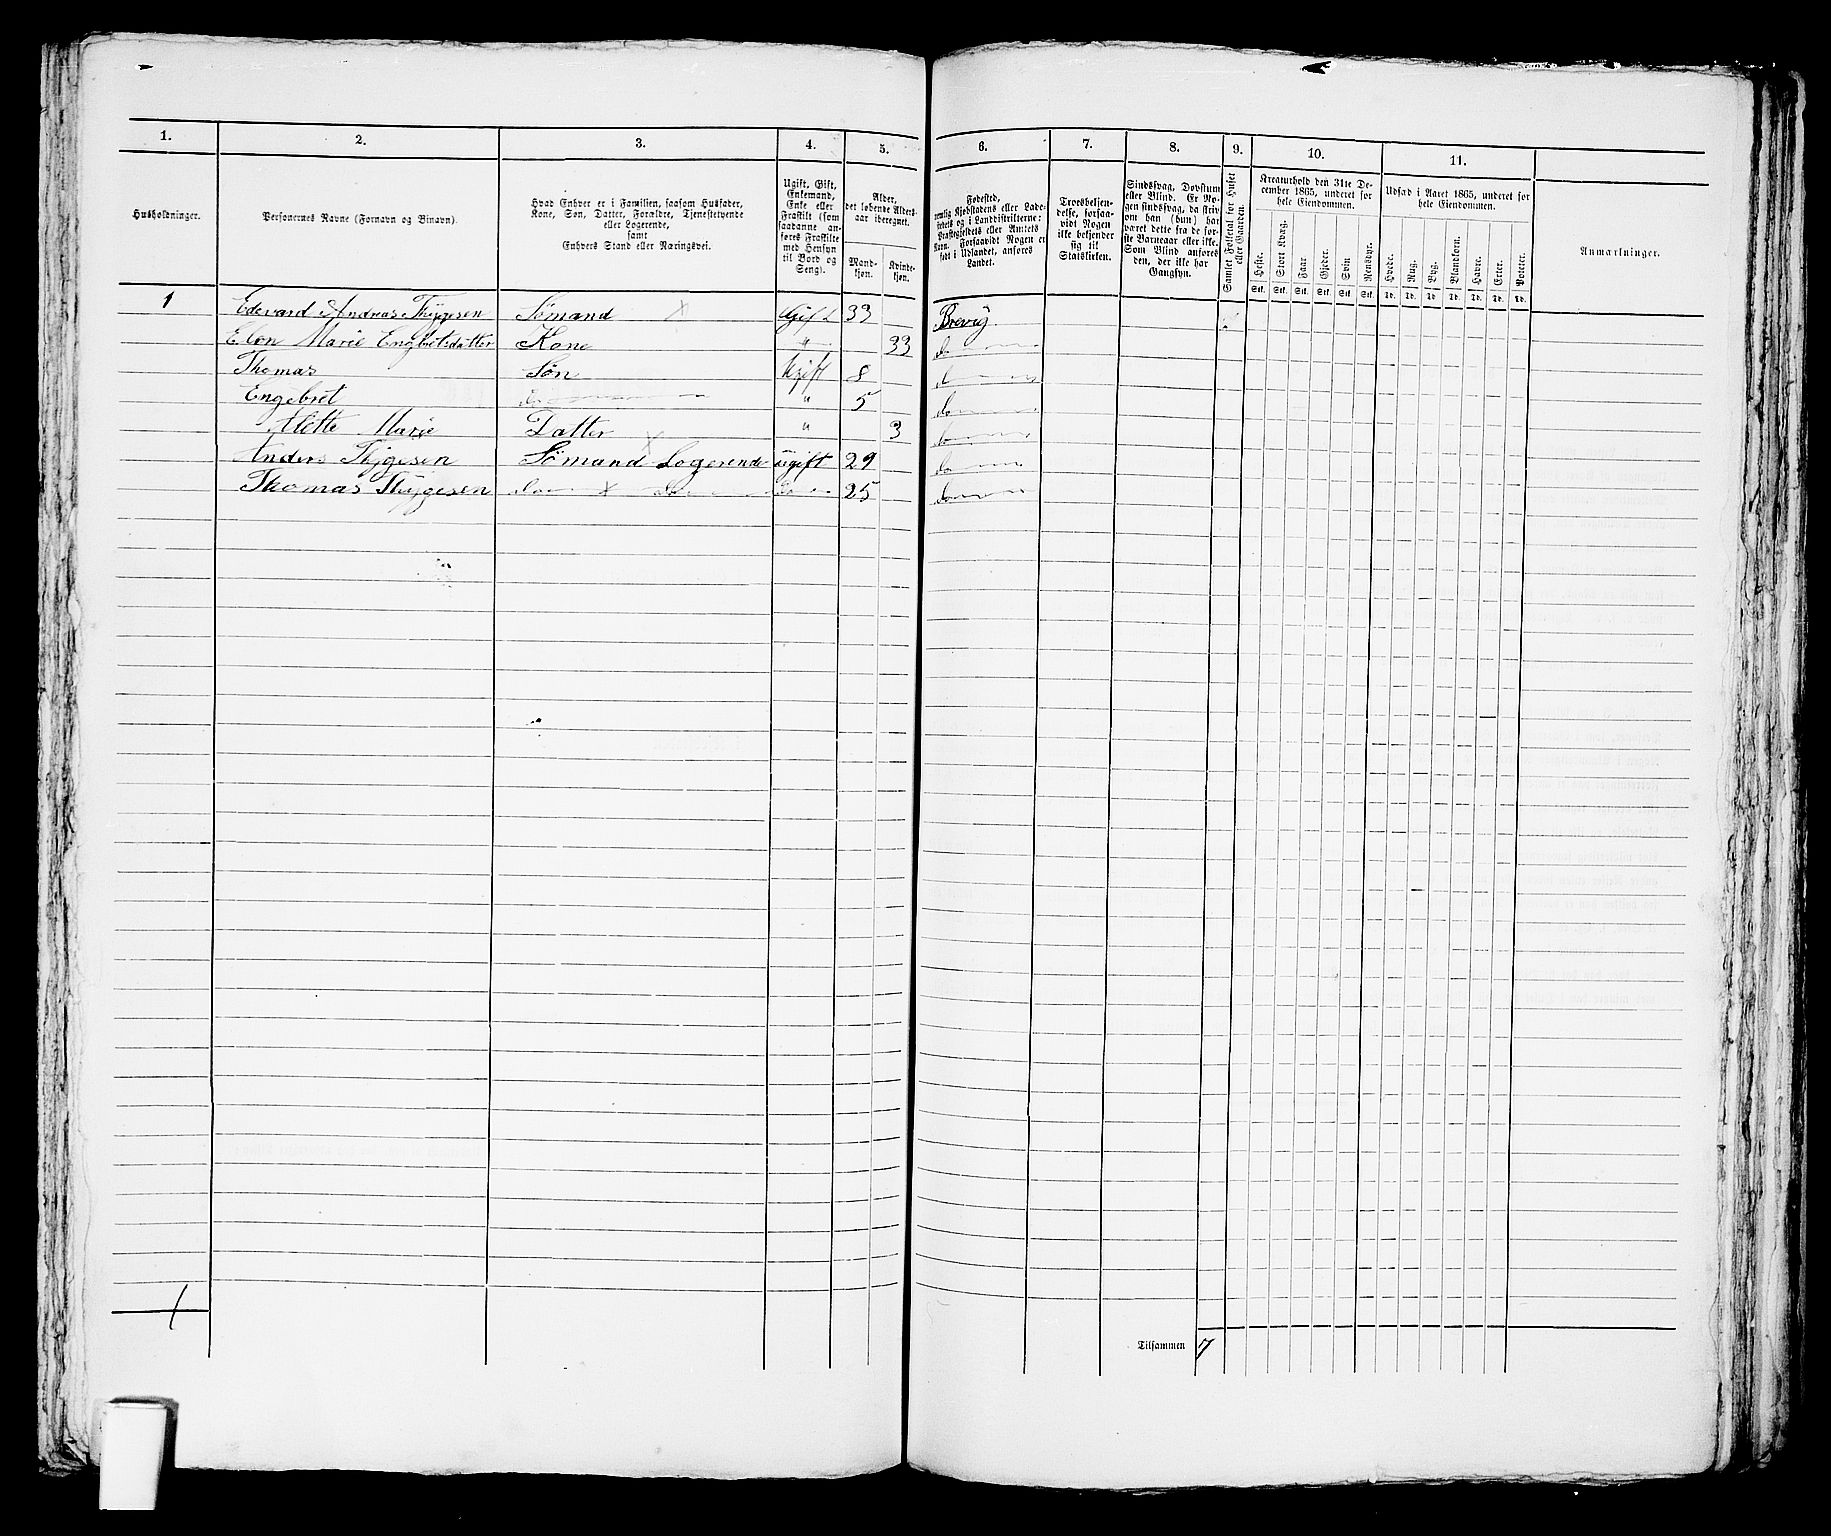 1. 2. 3. 4. 5. 6. 7. 8. 9. 10. 11.
Husholdninger.
Personernes Navne (Fornavn og Binavn).
Hvad Enhver er i Familien, saasom Husfader,
Kone, Søn, Datter, Forældre, Tjenestetyende
eller Logerende,
samt
Enhvers Stand eller Næringsvei.
Ugift, Gift,
Enkemand,
Enke eller
Fraskilt (som
saadanne an-
føres Fraskilte
med Hensyn
til Bord og
Seng).
Alder,
det løbende Alders-
aar iberegnet.
Mand-
kjøn.
Kvinde-
kjøn.
Fødested,
nemlig Kjøbstadens eller Lade-
stedets og i Landdistrikterne:
Præstegjeldets eller Amtets
Navn. Forsaavidt Nogen er
født i Udlandet, anføres
Landet.
Troesbekjen-
delse, forsaa-
vidt Nogen
ikke bekjender
sig til
Statskirken.
Sindssvag, Døvstum
eller Blind. Er No-
gen sindssvag, da skriv
om han (hun) har
været dette fra de før-
ste Barneaar eller ikke.
Som Blind anføres
den, der ikke har
Gangsyn.
Samlet Folketal for Huset
eller Gaarden.
Kreaturhold den 31te De-
cember 1865, underet for
hele Eiendommen.
Heste. Stort Kvæg. Faar Gjeder. Svin Rensdyr.
Stk. Stk. Stk. Stk. Stk. Stk.
Udsæd i Aaret 1865, underet for
hele Eiendommen.
Hvede. Rug. Byg. Blandkorn. Havre. Erter. Poteter.
Td. Td. Td. Td. Td. Td. Td.
Anmærkninger.
1 Edevard Andreas Thygesen Sømand x Gift 33 Brevig
Elen Marie Engbetsdatter Kone " 33 do
Thomas Søn Ugift 8 do
Engebret do " 5 do
Mette Marie Datter " 3 do
Anders Thygesen Sømand Logerende ugift 29 do
Thomas Thygesen do x do do 25 do
1
Tilsammen 7